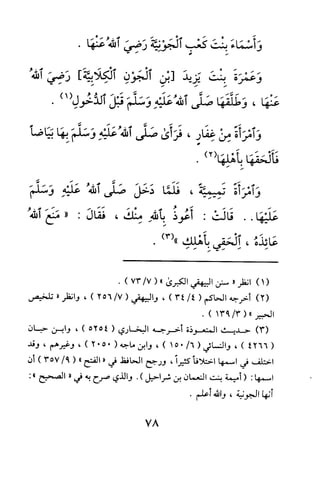 وَأَسْمَاءَ بِنْتَ كَعْبٍ ٱلْجَوْنِيَّةَ رَضِيَ ٱللهُ عَنْهَا .
وَعَمْرَةَ بِنْتَ يَزِيدَ [بْنِ ٱلْجَوْنِ ٱلْكِلَابِيَّةَ] رَضِيَ ٱللهُ
عَنْهَا ، وَطَلَّقَهَا صَلَّى ٱللهُ عَلَيْهِ وَسَلَّمَ قَبْلَ ٱلدُّخُولِ(١) .
وَٱمْرَأَةً مِنْ غِفَارٍ ، فَرَأَىٰ صَلَّى ٱللهُ عَلَيْهِ وَسَلَّمَ بِهَا بَيَاضاً
فَأَلْحَقَهَا بِأَهْلِهَا(٢) .
وَٱمْرَأَةً تَمِيمِيَّةً ، فَلَمَّا دَخَلَ صَلَّى ٱللهُ عَلَيْهِ وَسَلَّمَ
عَلَيْهَا . . قَالَتْ : أَعُوذُ بِٱللهِ مِنْكَ ، فَقَالَ : « مَنَعَ ٱللهُ
عَائِذَهُ ، اِلْحَقِي بِأَهْلِكِ »(٣) .
(١) انظر « سنن البيهقي الكبرىٰ » ( ٧٣/٧ ) .
(٢) أخرجه الحاكم ( ٣٤/٤ ) ، والبيهقي ( ٢٥٦/٧ ) ، وانظر « تلخيص
الحبير » ( ١٣٩/٣ ) .
(٣) حديث المتعوذة أخرجه البخاري ( ٥٢٥٤ ) ، وابن حبان
( ٤٢٦٦ ) ، والنسائي ( ١٥٠/٦ ) ، وابن ماجه ( ٢٠٥٠ ) ، وغيرهم ، وقد
اختلف في اسمها اختلافاً كثيراً ، ورجح الحافظ في « الفتح » ( ٣٥٧/٩ ) أن
اسمها : ( أميمة بنت النعمان بن شراحيل ) . والذي صرح به في « الصحيح » :
أنها الجونية ، والله أعلم .
٧٨